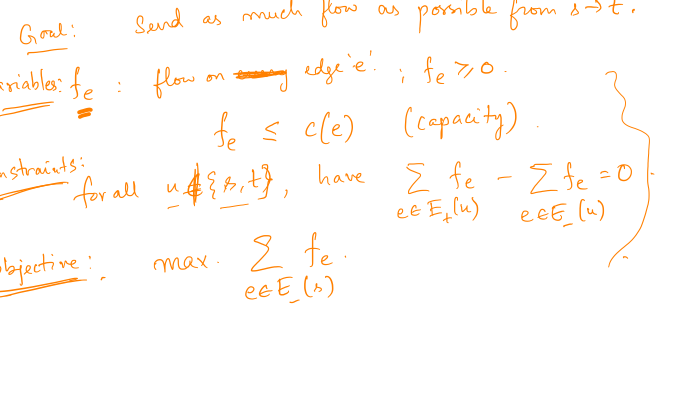 Goal: Send as much flow as possible from s→t.
ariables: fₑ : flow on edge 'e'. ; fₑ ≥ 0.
fₑ ≤ c(e) (capacity).
nstraints:
for all u ∉ {s,t}, have ∑_{e∈E₊(u)} fₑ - ∑_{e∈E₋(u)} fₑ = 0
bjective: max. ∑_{e∈E₋(s)} fₑ.